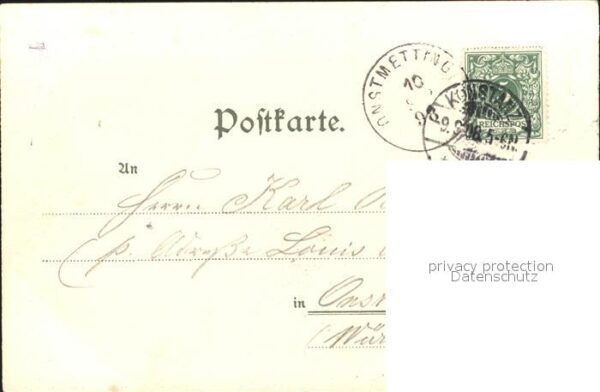 ONSTMETTING
10
KONSTANZ
9.9.98.5-6N.
REICHSPOST
Postkarte.
An
Herrn Karl
p. Adreße Louis
in Onst
(Wür
privacy protection
Datenschutz